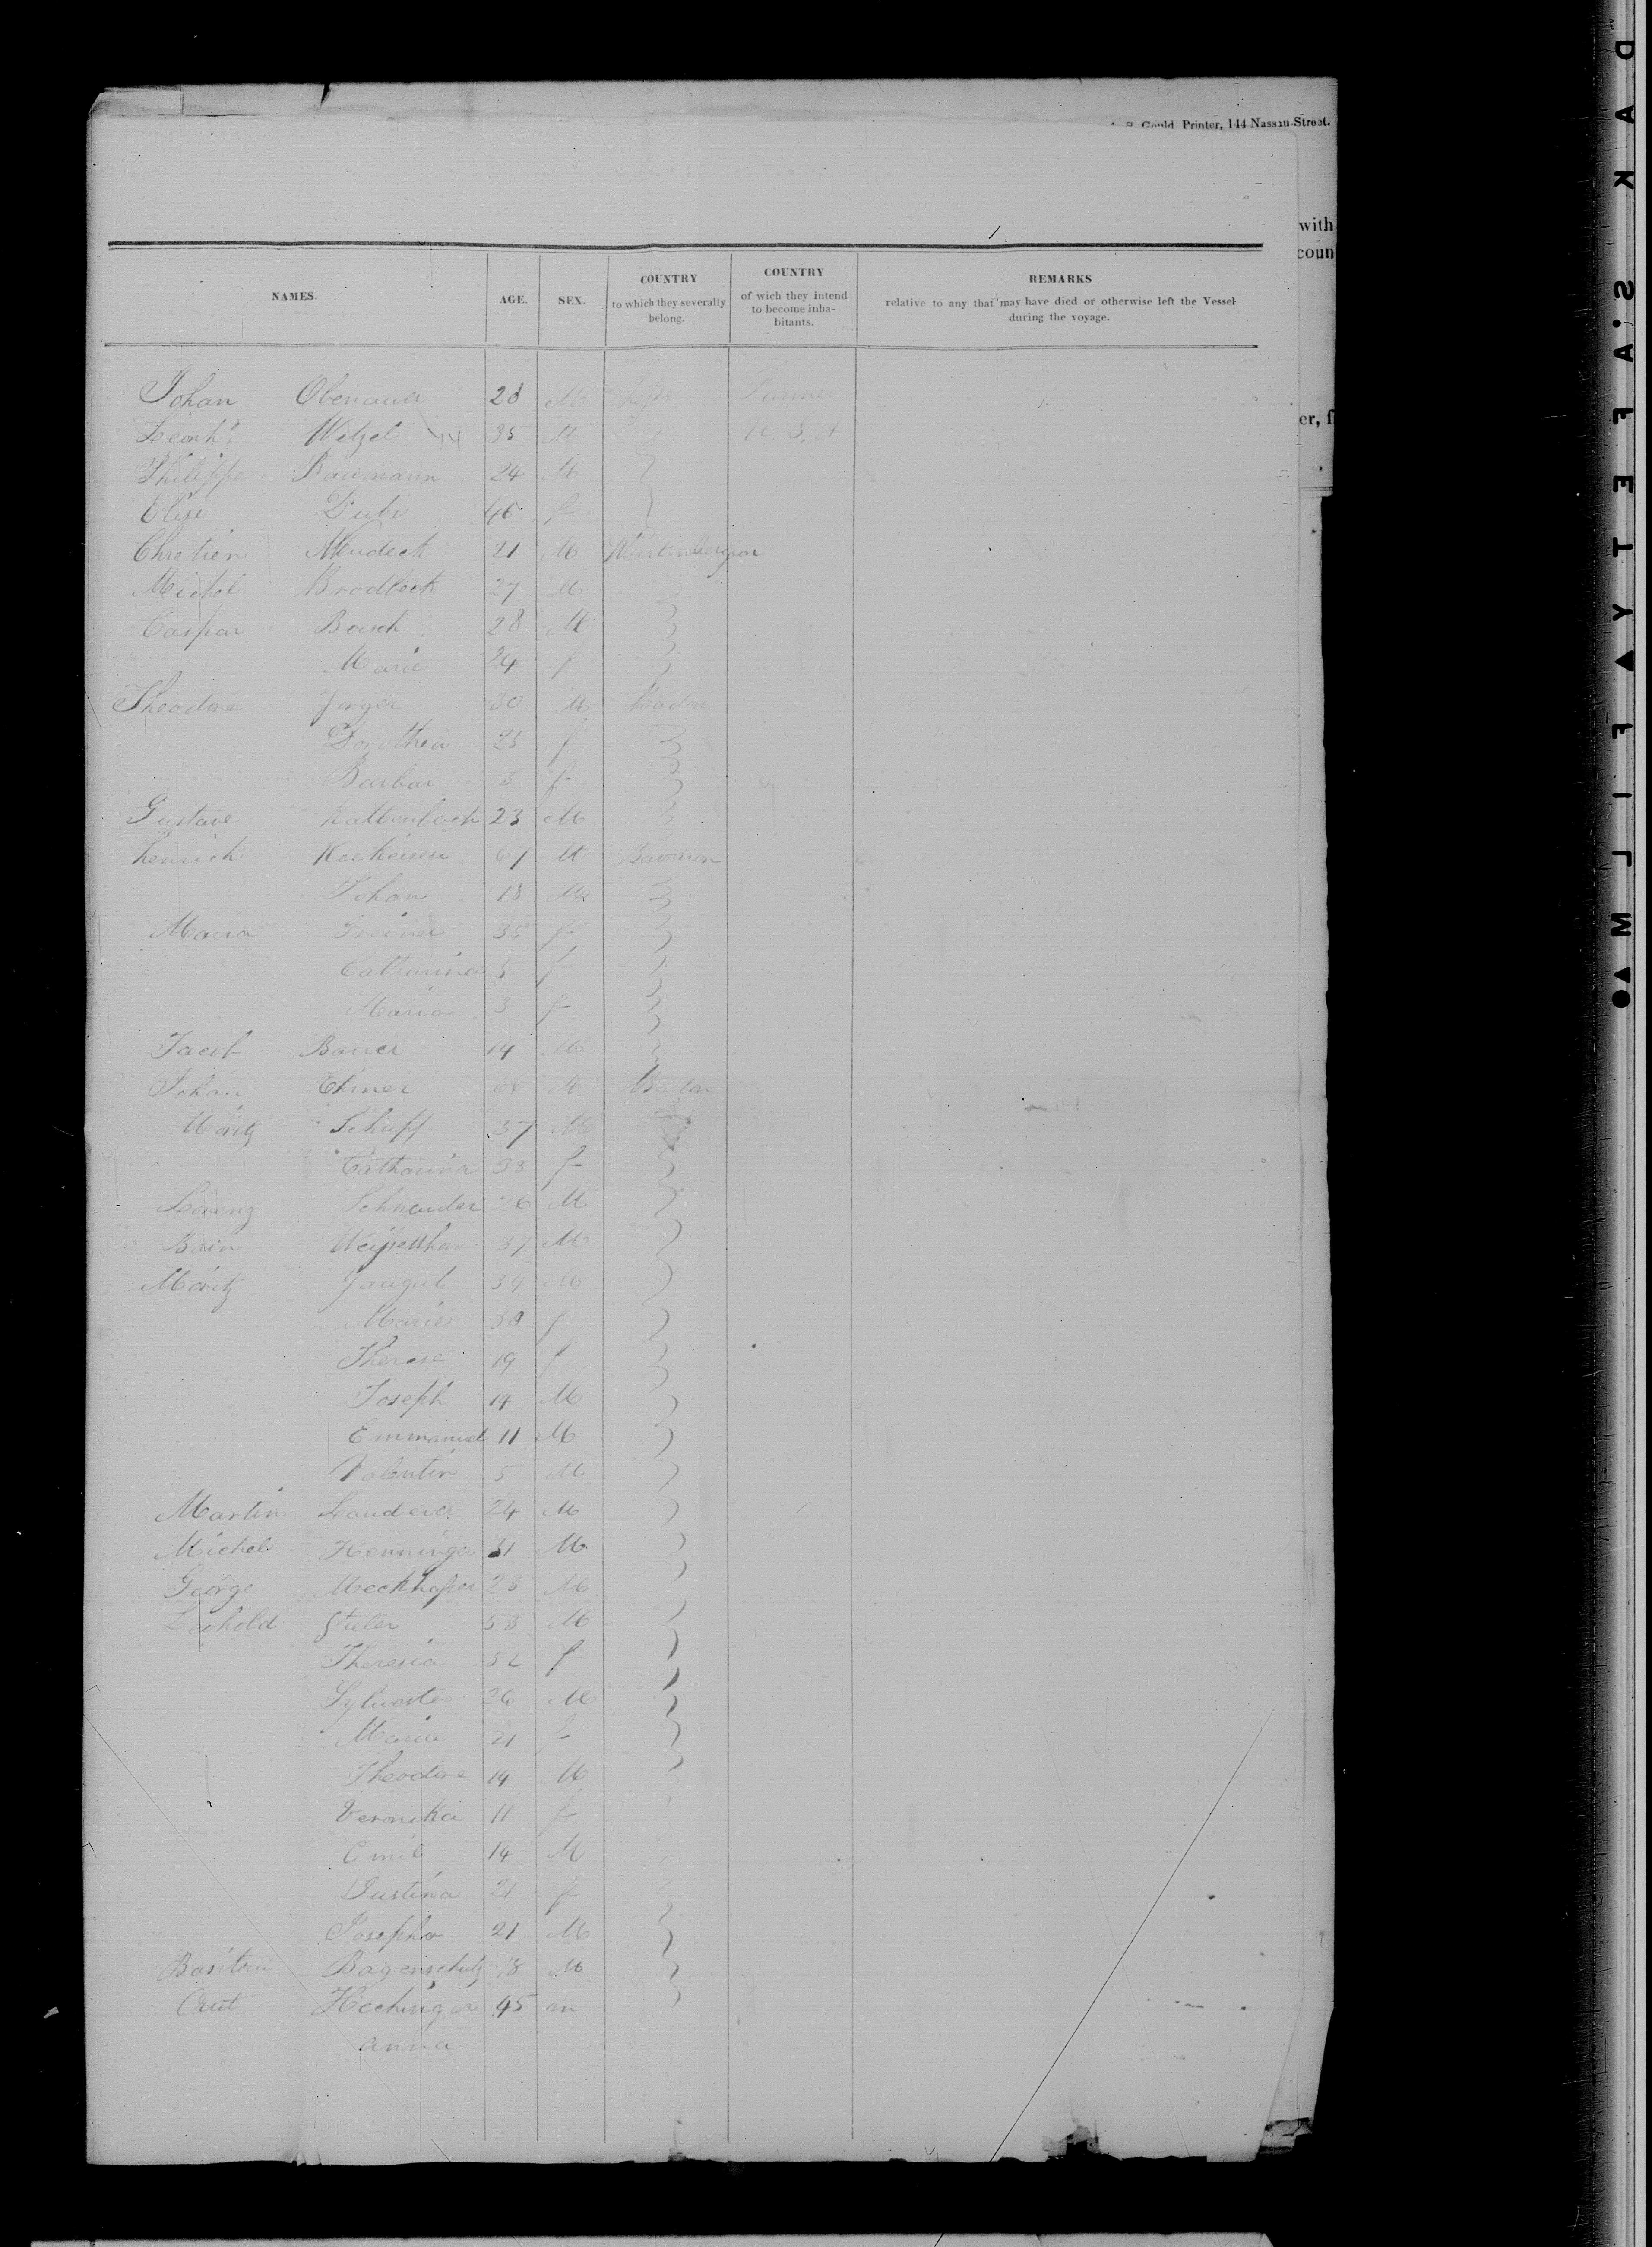 Gould Printer, 144 Nassau-Street.
with
coun
1.
NAMES. AGE. SEX. COUNTRY to which they severally belong. COUNTRY of wich they intend to become inhabitants. REMARKS relative to any that may have died or otherwise left the Vessel during the voyage.
Johan Obenaua 28 M Farmer
er, f
Leonhd Wetzel 35 M U. S. A
Philippe Baumann 24 M
Elise Dubi 46 f
Chretien Neudeck 21 M Wurtenberger
Michel Brodbeck 27 M
Caspar Bosch 28 M
Marie 24 f
Theodore Jorger 30 M Baden
Dorothea 25 f
Barbar 3 f
Gustave Kattenbach 23 M
henrich 67 M Bavarian
Johan 18 M
Maria Greiner 35 f
Catharina 5 f
Maria 3 f
Jacob Bauer 14 M
Johan Ehmer M Baden
Moritz Schupf 37 M
Catharina 38 f
Lorenz Schneider 26 M
37 M
Moritz 34 M
Marie 38 f
Therese 19 f
Joseph 14 M
Emmanuel 11 M
Valentin 5 M
Martin Landerer 24 M
Michel Henninger 31 M
George 23 M
Leohold Stuler 53 M
Theresia 52 f
Sylvester 26 M
Maria 21 f
Theodore 14 M
Veronika 11 f
Emil 14 M
Justina 21 f
Josepha 21 M
Bagenschutz 18 M
Hechinger 45 m
anna
DAK S.AFETY▲FILM●▲